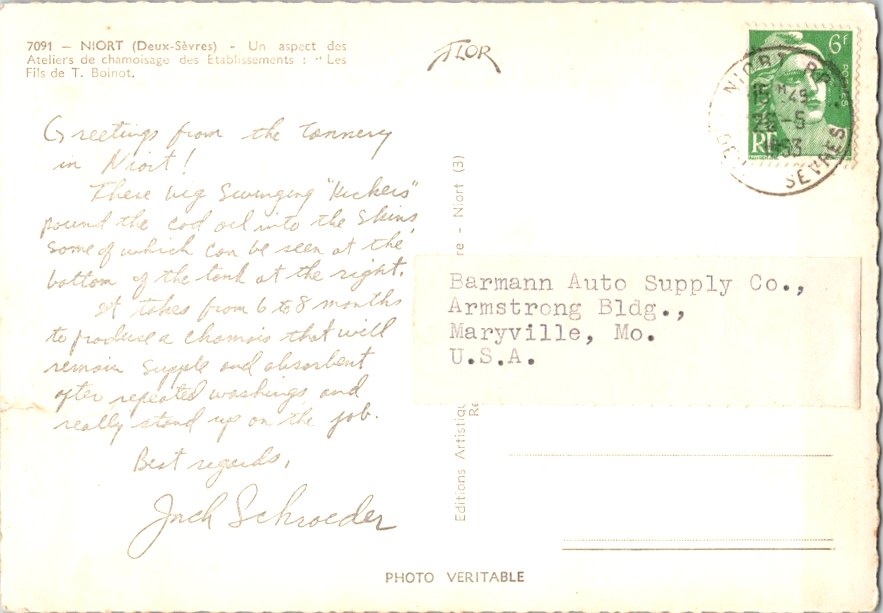 7091 — NIORT (Deux-Sèvres) - Un aspect des
Ateliers de chamoisage des Etablissements : "Les
Fils de T. Boinot.
FLOR
6F
POSTES
RF
NIORT RP
15H45
26-5
1953
SEVRES
Greetings from the tannery
in Niort!
These big swinging "Kickers"
pound the cod oil into the skins,
some of which can be seen at the
bottom of the tank at the right.
It takes from 6 to 8 months
to produce a chamois that will
remain supple and absorbent
after repeated washings and
really stand up on the job.
Best regards,
Jack Schroeder
Editions Artistiq
re - Niort (3)
Re
Barmann Auto Supply Co.,
Armstrong Bldg.,
Maryville, Mo.
U.S.A.
PHOTO VERITABLE